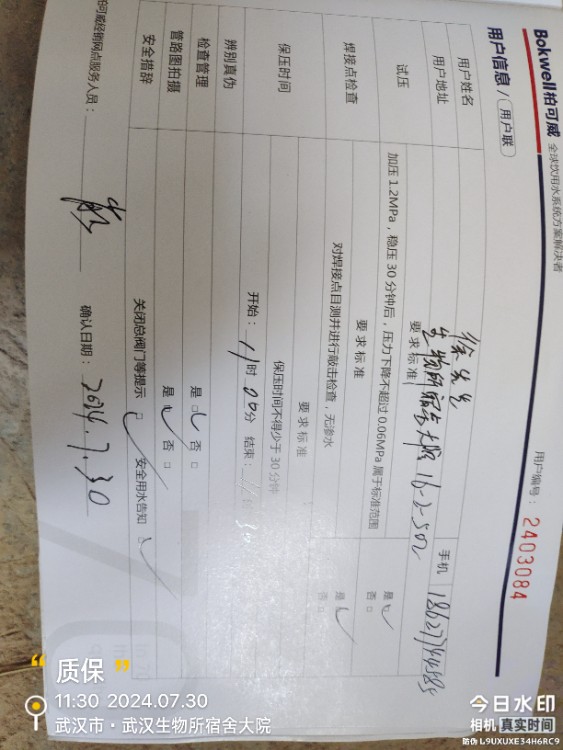 Bokwell柏可威 全球饮用水系统方案解决者
用户信息 / 用户联
用户编号: 2403084
用户姓名 徐先生 手机
用户地址 生物所宿舍大院 16-2-502
试压 要求标准
加压 1.2MPa，稳压 30 分钟后，压力下降不超过 0.06MPa 属于标准范围 是 否
焊接点检查 要求标准
对焊接点目测并进行敲击检查，无渗水 是 否
保压时间 要求标准
保压时间不得少于 30 分钟
开始: 11时 00分 结束:
辨别真伪 是 否
检查管理 是 否
管路图拍摄
安全措辞 关闭总阀门等提示 安全用水告知
柏可威经销网点服务人员: 确认日期: 2024.7.30
“质保”
11:30 2024.07.30
武汉市·武汉生物所宿舍大院
今日水印
相机 真实时间
防伪 L9UXUXE34H6RC9